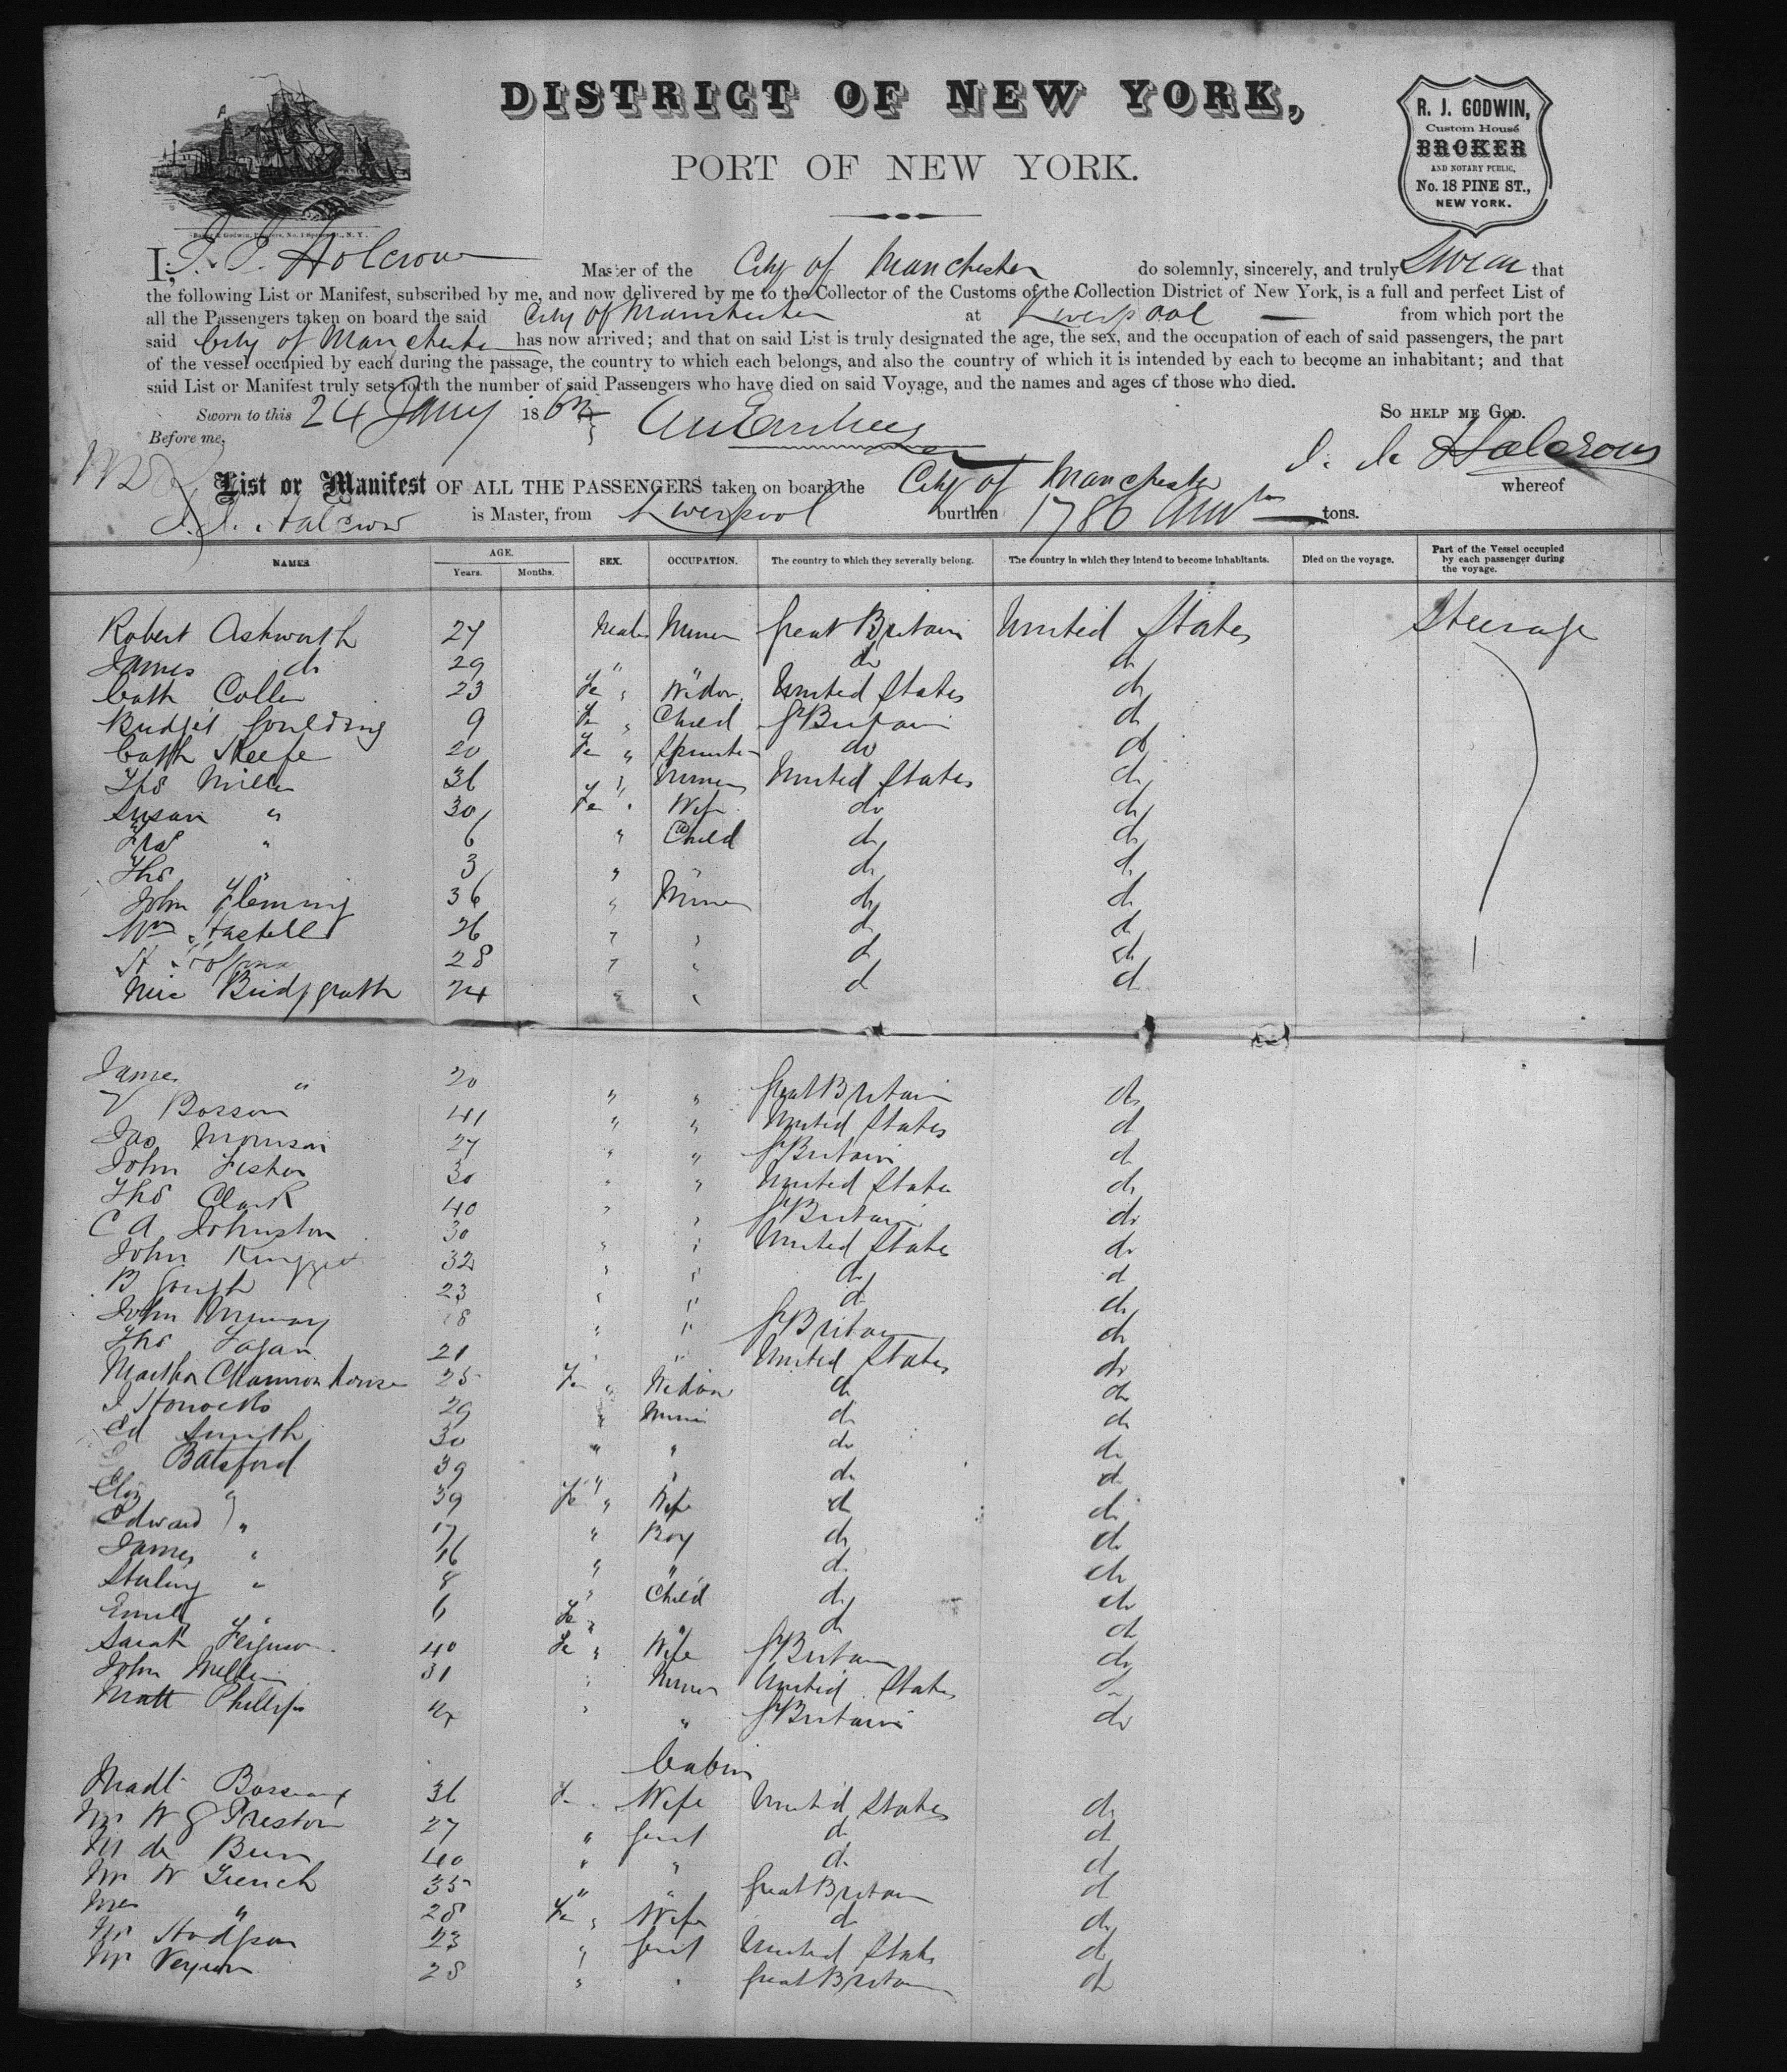 DISTRICT OF NEW YORK,
PORT OF NEW YORK.
R. J. GODWIN,
Custom House
BROKER
AND NOTARY PUBLIC,
No. 18 PINE ST.,
NEW YORK.
I, Holcrow Master of the City of Manchester do solemnly, sincerely, and truly Swear that
the following List or Manifest, subscribed by me, and now delivered by me to the Collector of the Customs of the Collection District of New York, is a full and perfect List of
all the Passengers taken on board the said City of Manchester at Liverpool from which port the
said City of Manchester has now arrived; and that on said List is truly designated the age, the sex, and the occupation of each of said passengers, the part
of the vessel occupied by each during the passage, the country to which each belongs, and also the country of which it is intended by each to become an inhabitant; and that
said List or Manifest truly sets forth the number of said Passengers who have died on said Voyage, and the names and ages of those who died.
Sworn to this 24 Jany 186 SO HELP ME GOD.
Before me, Halcrow
List or Manifest OF ALL THE PASSENGERS taken on board the City of Manchester whereof
Halcrow is Master, from Liverpool burthen 1786 tons.
NAMES AGE. Years. Months. SEX. OCCUPATION. The country to which they severally belong. The country in which they intend to become inhabitants. Died on the voyage. Part of the Vessel occupied by each passenger during the voyage.
Robert Ashworth 27 Male Miner Great Britain United States Steerage
James do 29 " " do do
Cath Collen 23 Fe " Widow United States do
Bridget Goulding 9 Fe " Child Gt Britain do
Cath Keefe 20 Fe " Spinster do do
Thos Miller 36 " Miner United States do
Susan " 30 Fe " Wife do do
Fras " 6 " Child do do
Thos " 3 " " do do
John Fleming 36 " Miner do do
Wm Hastell 26 " " do do
28 " " do do
24 " " do do
James " 20 " " Great Britain do
V Bosson 41 " " United States do
Jas Morrison 27 " " Gt Britain do
John Fisher 30 " " United States do
Thos Clark 40 " " Gt Britain do
C A Johnston 30 " " United States do
John 32 " " do do
B Gough 23 " " do do
John Murray 18 " " Gt Britain do
Thos Fagan 21 " " United States do
Martha 25 Fe " Widow do do
J Horrocks 29 " Miner do do
Ed Smith 30 " " do do
Batsford 39 " " do do
Eliz " 39 Fe " Wife do do
Edward " 17 " Boy do do
James " 16 " " do do
Sterling " 8 " Child do do
Emily " 6 Fe " " do do
Sarah Ferguson 40 Fe " Wife Gt Britain do
John 31 " Miner United States "
Matt Phillips " " Gt Britain do
Cabin
36 Fe Wife United States do
Mr W G Preston 27 " Gent do do
M de 40 " " do do
Mr W French 35 " " Great Britain do
Mrs " 28 Fe " Wife do do
Mr Hodgson 23 " Gent United States do
Mr 28 " " Great Britain do